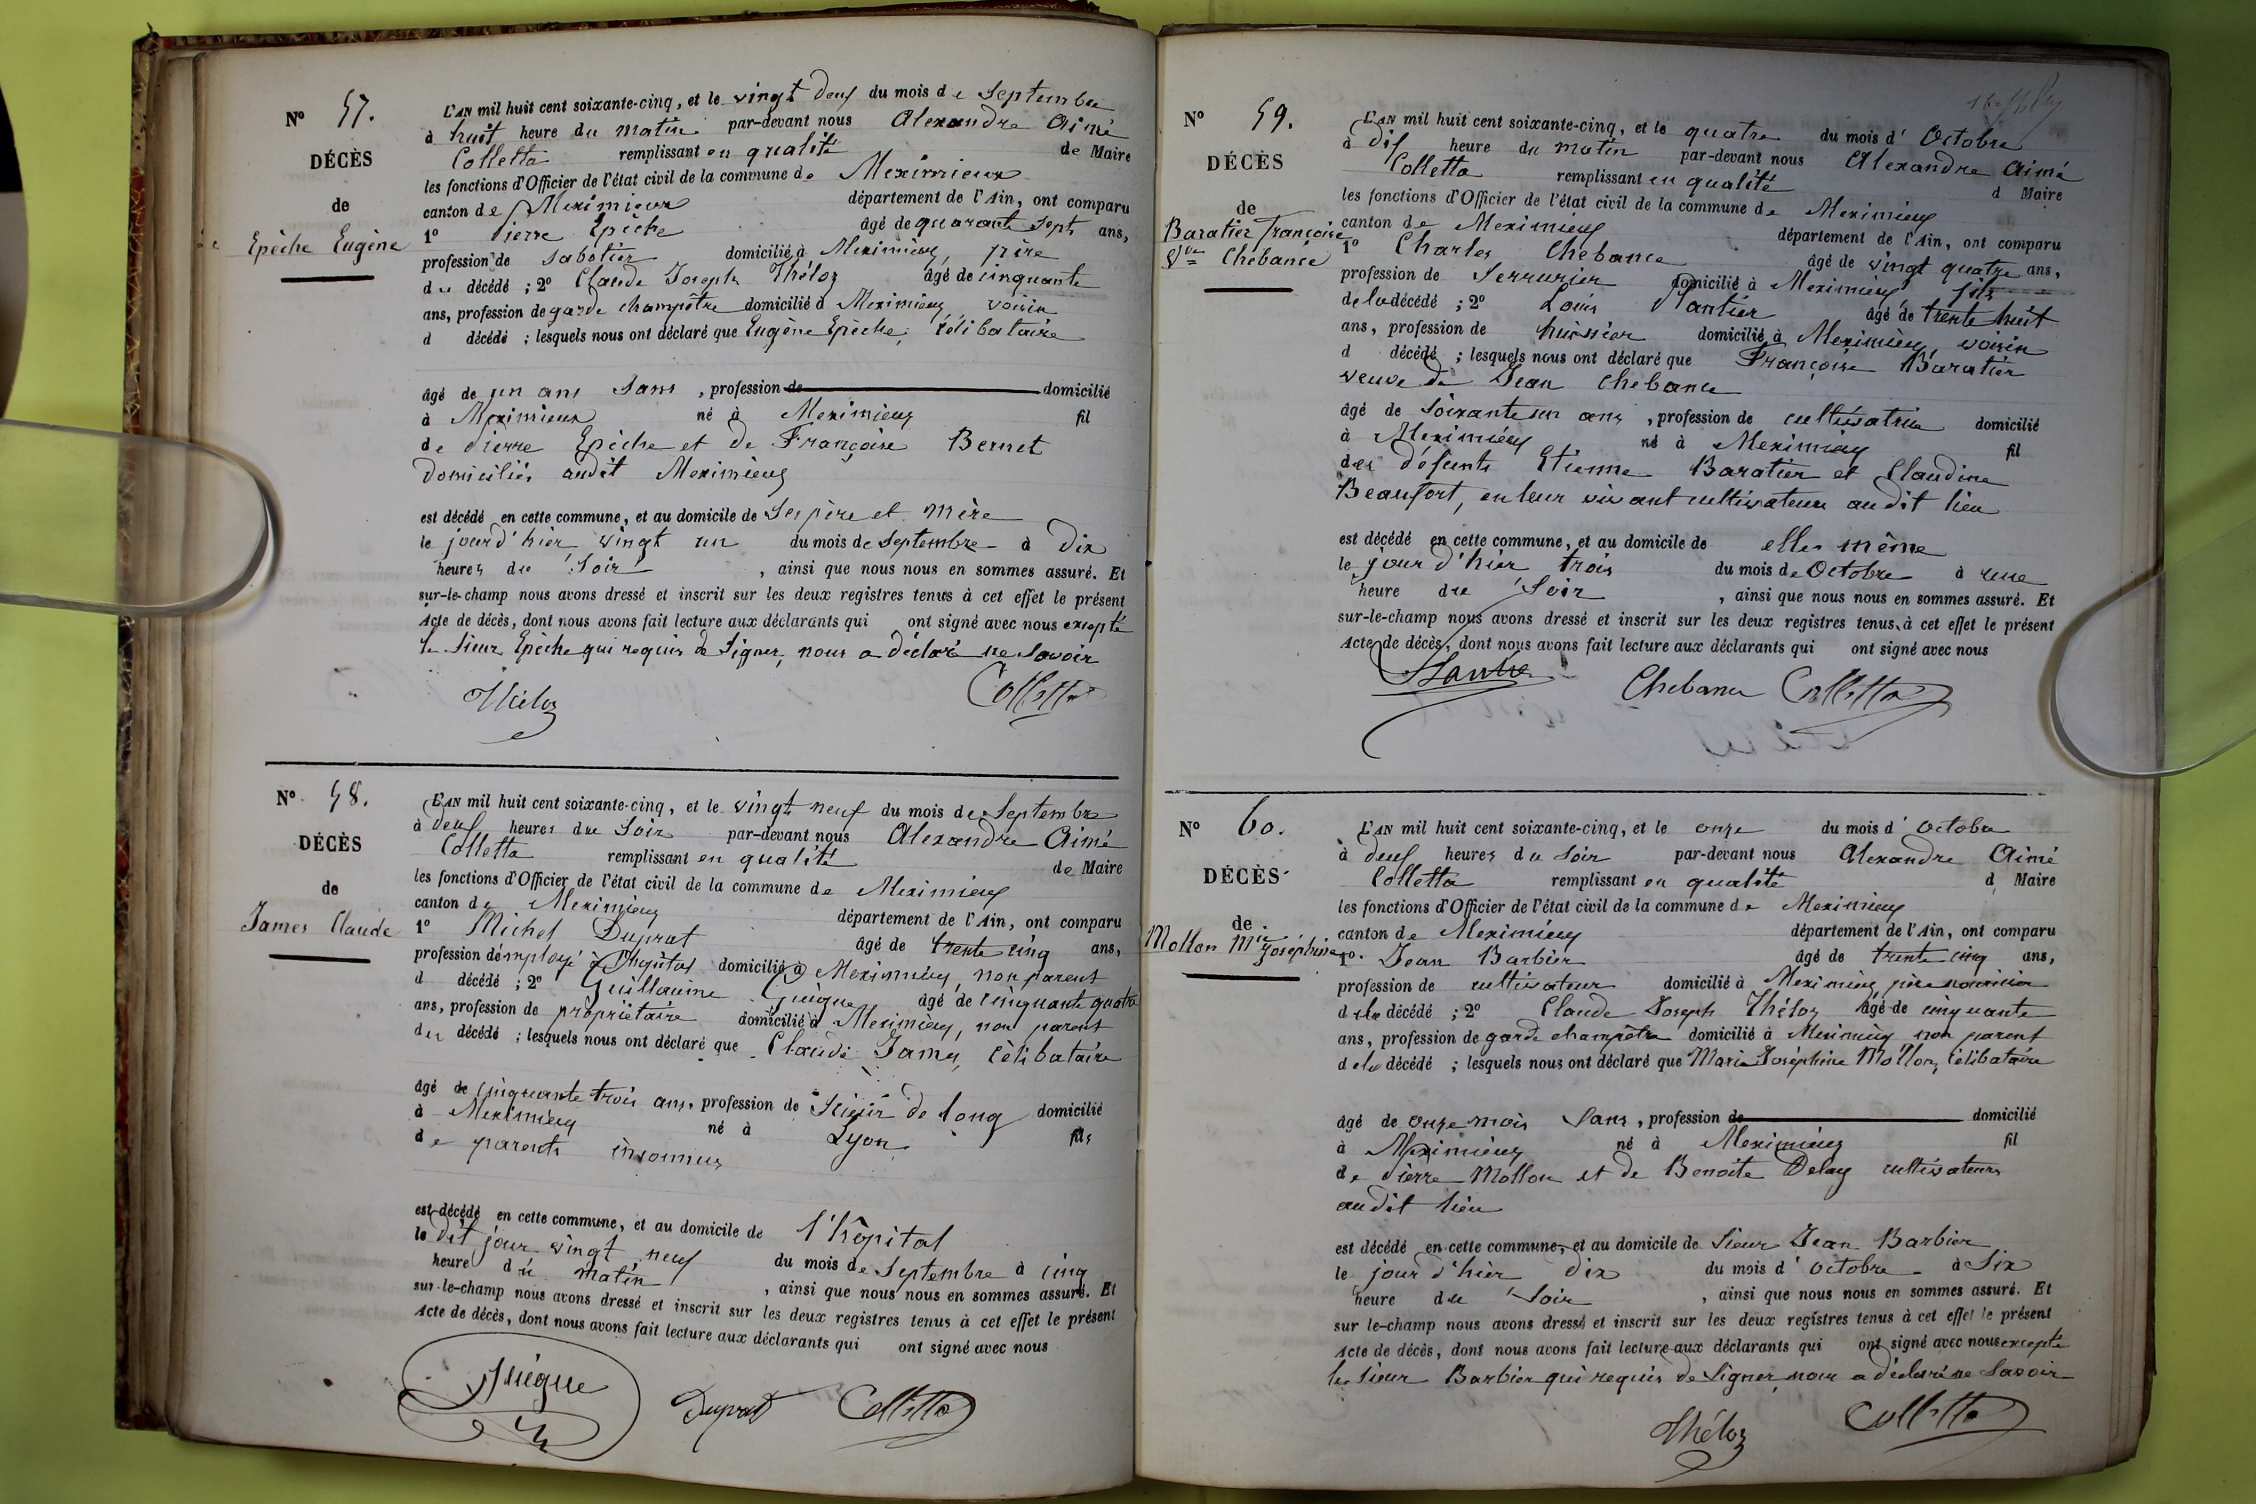 N° 57.
DÉCÈS
de
Epèche Eugène
L'AN mil huit cent soixante-cinq, et le vingt deux du mois de Septembre
à huit heure du matin par-devant nous Alexandre Aimé
Colletta remplissant en qualité de Maire
les fonctions d'Officier de l'état civil de la commune de Meximieux
canton de Meximieux département de l'Ain, ont comparu
1° Pierre Epèche âgé de quarante sept ans,
profession de Sabotier domicilié à Meximieux, père
du décédé ; 2° Claude Joseph Théloz âgé de cinquante
ans, profession de garde champêtre domicilié à Meximieux voisin
d décédé ; lesquels nous ont déclaré que Eugène Epèche, célibataire
âgé de un ans Sans , profession de domicilié
à Meximieux né à Meximieux fil
de Pierre Epèche et de Françoise Bernet
domiciliés audit Meximieux
est décédé en cette commune, et au domicile de Ses père et mère
le jour d'hier vingt un du mois de Septembre à dix
heures du Soir , ainsi que nous nous en sommes assuré. Et
sur-le-champ nous avons dressé et inscrit sur les deux registres tenus à cet effet le présent
Acte de décès, dont nous avons fait lecture aux déclarants qui ont signé avec nous excepté
le Sieur Epèche qui requis de Signer, nous a déclaré ne Savoir
Théloz Colletta
N° 58.
DÉCÈS
de
James Claude
L'AN mil huit cent soixante-cinq, et le vingt neuf du mois de Septembre
à deux heures du Soir par-devant nous Alexandre Aimé
Colletta remplissant en qualité de Maire
les fonctions d'Officier de l'état civil de la commune de Meximieux
canton de Meximieux département de l'Ain, ont comparu
1° Michel Duprat âgé de trente cinq ans,
profession d'employé à l'hôpital domicilié à Meximieux, non parent
d décédé ; 2° Guillaume Guigue âgé de cinquante quatre
ans, profession de propriétaire domicilié à Meximieux, non parent
du décédé ; lesquels nous ont déclaré que Claude James, célibataire
âgé de cinquante trois ans, profession de Scieur de long domicilié
à Meximieux né à Lyon fils
de parents inconnus
est décédé en cette commune, et au domicile de l'hôpital
le dit jour vingt neuf du mois de Septembre à cinq
heure du matin , ainsi que nous nous en sommes assuré. Et
sur-le-champ nous avons dressé et inscrit sur les deux registres tenus à cet effet le présent
Acte de décès, dont nous avons fait lecture aux déclarants qui ont signé avec nous
Guigue Duprat Colletta
N° 59.
DÉCÈS
de
Baratier Françoise
Vve Chebance
L'AN mil huit cent soixante-cinq, et le quatre du mois d' Octobre
à dix heure du matin par-devant nous Alexandre Aimé
Colletta remplissant en qualité d Maire
les fonctions d'Officier de l'état civil de la commune de Meximieux
canton de Meximieux département de l'Ain, ont comparu
1° Charles Chebance âgé de vingt quatre ans,
profession de Serrurier domicilié à Meximieux fils
de la décédé ; 2° Louis Plantier âgé de trente huit
ans, profession de huissier domicilié à Meximieux voisin
d décédé ; lesquels nous ont déclaré que Françoise Baratier
veuve de Jean Chebance
âgé de Soixante un ans , profession de cultivatrice domicilié
à Meximieux né à Meximieux fil
des défunts Etienne Baratier et Claudine
Beaufort, en leur vivant cultivateurs audit lieu
est décédé en cette commune, et au domicile de elle même
le jour d'hier trois du mois de Octobre à une
heure du Soir , ainsi que nous nous en sommes assuré. Et
sur-le-champ nous avons dressé et inscrit sur les deux registres tenus à cet effet le présent
Acte de décès, dont nous avons fait lecture aux déclarants qui ont signé avec nous
Chebance Colletta
N° 60.
DÉCÈS
de
Mollon Mie
Joséphine
L'AN mil huit cent soixante-cinq, et le onze du mois d' Octobre
à deux heures du Soir par-devant nous Alexandre Aimé
Colletta remplissant en qualité d Maire
les fonctions d'Officier de l'état civil de la commune de Meximieux
canton de Meximieux département de l'Ain, ont comparu
1° Jean Barbier âgé de trente cinq ans,
profession de cultivateur domicilié à Meximieux père nourricier
de la décédé ; 2° Claude Joseph Théloz âgé de cinquante
ans, profession de garde champêtre domicilié à Meximieux non parent
de la décédé ; lesquels nous ont déclaré que Marie Joséphine Mollon, célibataire
âgé de onze mois Sans , profession de domicilié
à Meximieux né à Meximieux fil
de Pierre Mollon et de Benoite Delay cultivateurs
audit lieu
est décédé en cette commune, et au domicile de Sieur Jean Barbier
le jour d'hier dix du mois d' octobre à Six
heure du Soir , ainsi que nous nous en sommes assuré. Et
sur le-champ nous avons dressé et inscrit sur les deux registres tenus à cet effet le présent
Acte de décès, dont nous avons fait lecture aux déclarants qui ont signé avec nous excepté
le Sieur Barbier qui requis de Signer nous a déclaré ne Savoir
Théloz Colletta